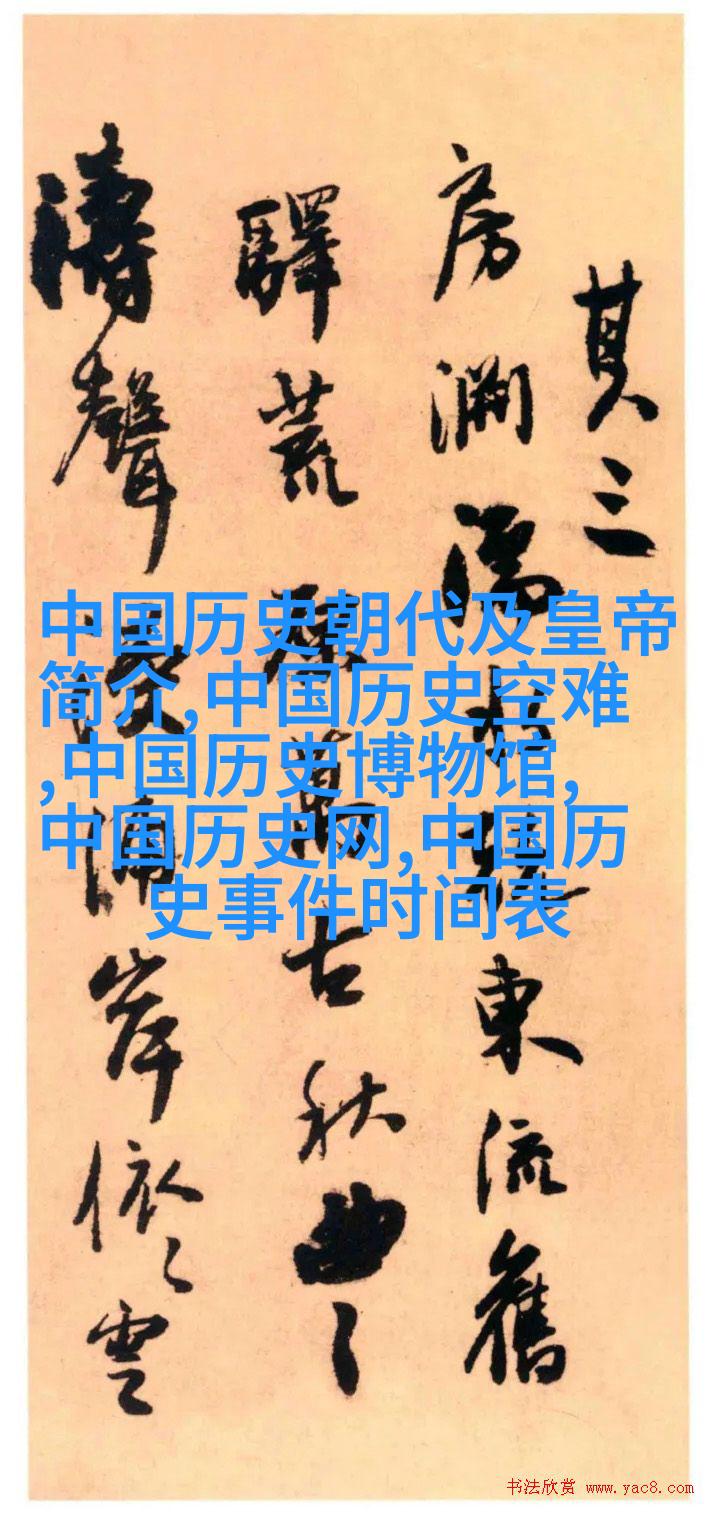 其三
房 東流舊
驛荒 萬古秋曲〻
濤聲 浦岸依〻雲
中国历史朝代及皇帝
简介,中国历史空难
,中国历史博物馆,
中国历史网,中国历
史事件时间表
书法欣赏 www.yac8.com